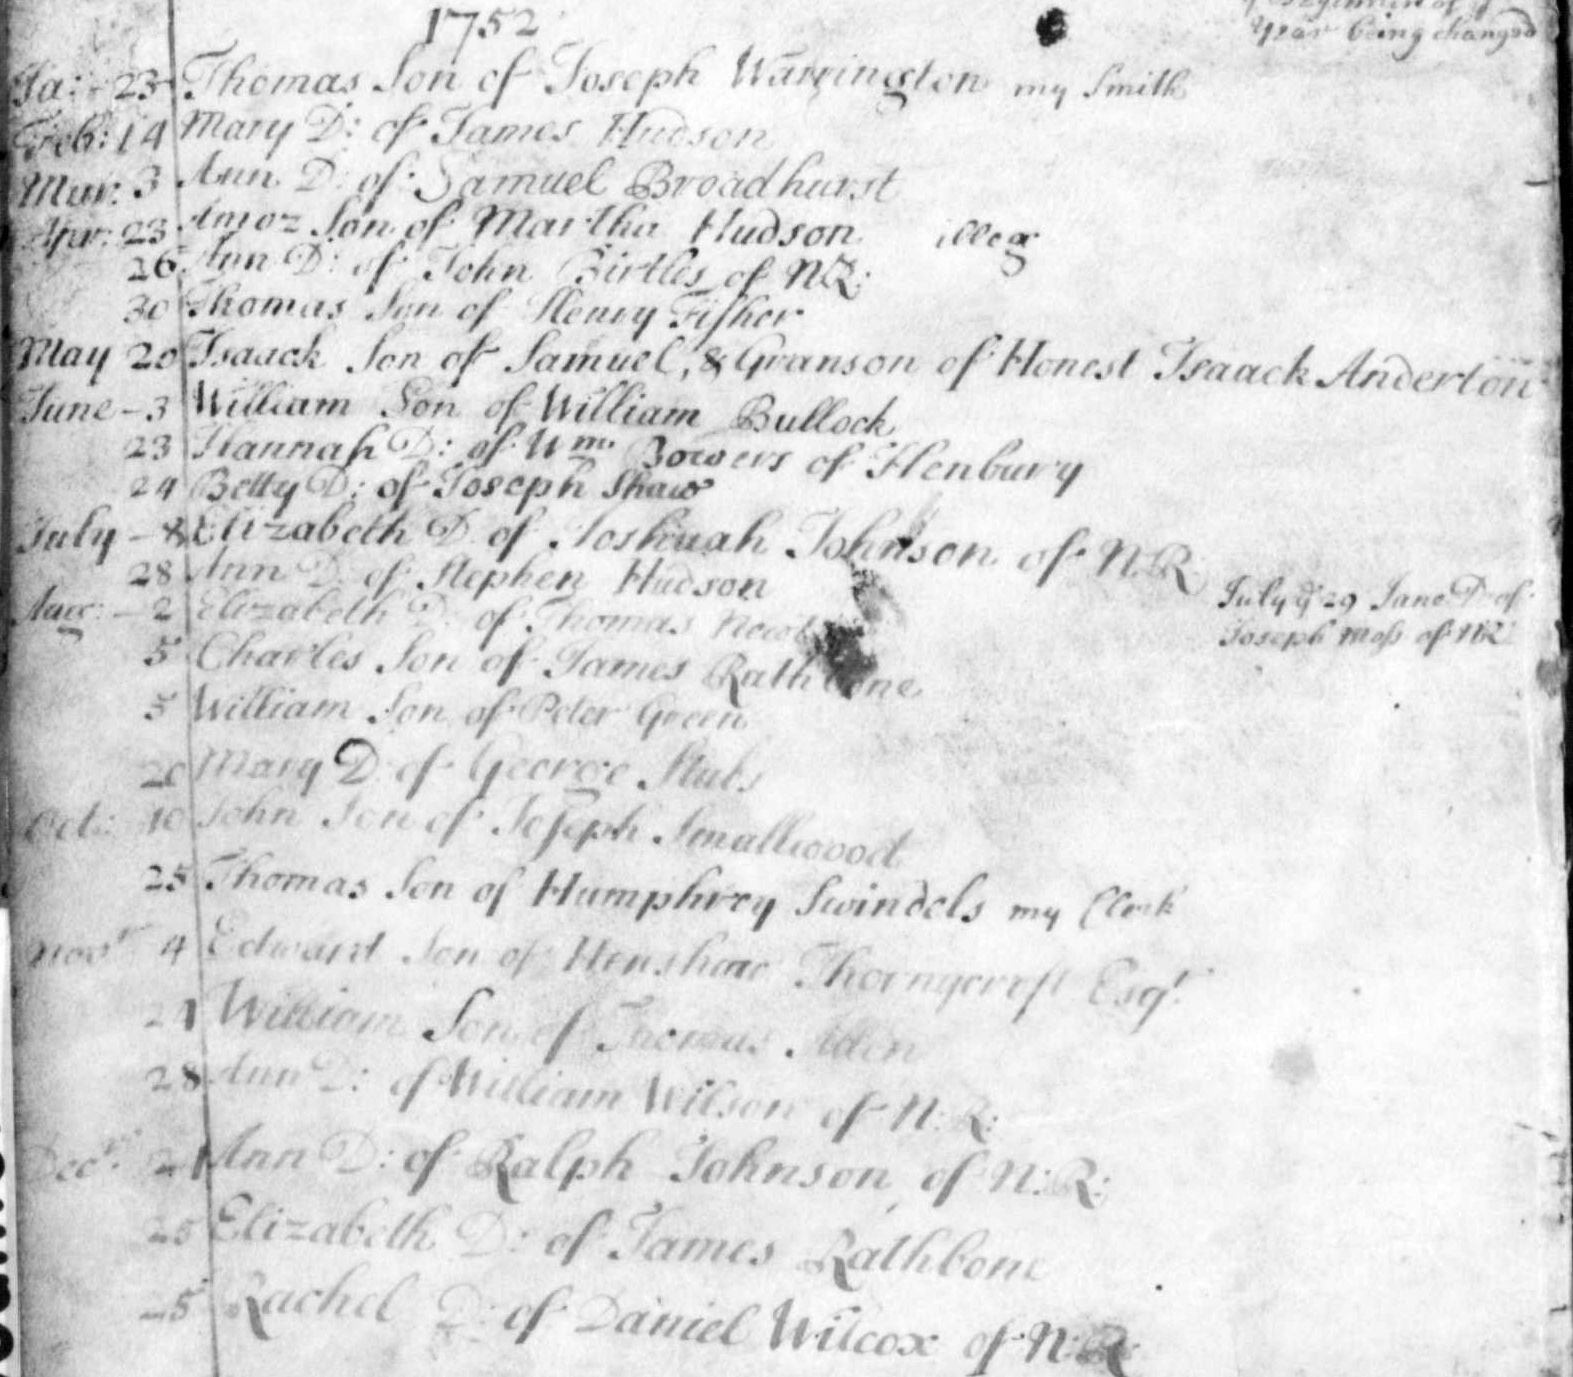 1752
year being changed
Ja: 23 Thomas Son of Joseph Warrington my Smith
Feb: 14 Mary D: of James Hudson
Mar: 3 Ann D: of Samuel Broadhurst
Apr: 23 Amoz Son of Martha Hudson illeg
26 Ann D: of John Birtles of N:R:
30 Thomas Son of Henry Fisher
May 20 Isaack Son of Samuel, & Granson of Honest Isaack Anderton
June - 3 William Son of William Bullock
23 Hannah D: of Wm. Bowers of Henbury
24 Betty D: of Joseph Shaw
July - 8 Elizabeth D: of Joshuah Johnson of N:R:
28 Ann D: of Stephen Hudson
July ye 29 Jane D: of
Joseph Moss of NR:
Aug: - 2 Elizabeth D: of Thomas
5 Charles Son of James Rathbone
5 William Son of Peter Green
20 Mary D: of George Stubs
Oct: 10 John Son of Joseph Smallwood
25 Thomas Son of Humphrey Swindels my Clerk
Novr 4 Edward Son of Henshaw Thornycroft Esqr.
21 William Son of Thomas
28 Ann D: of William Wilson of N:R:
Decr: 21 Ann D: of Ralph Johnson of N:R:
25 Elizabeth D: of James Rathbone
25 Rachel D: of Daniel Wilcox of N:R: